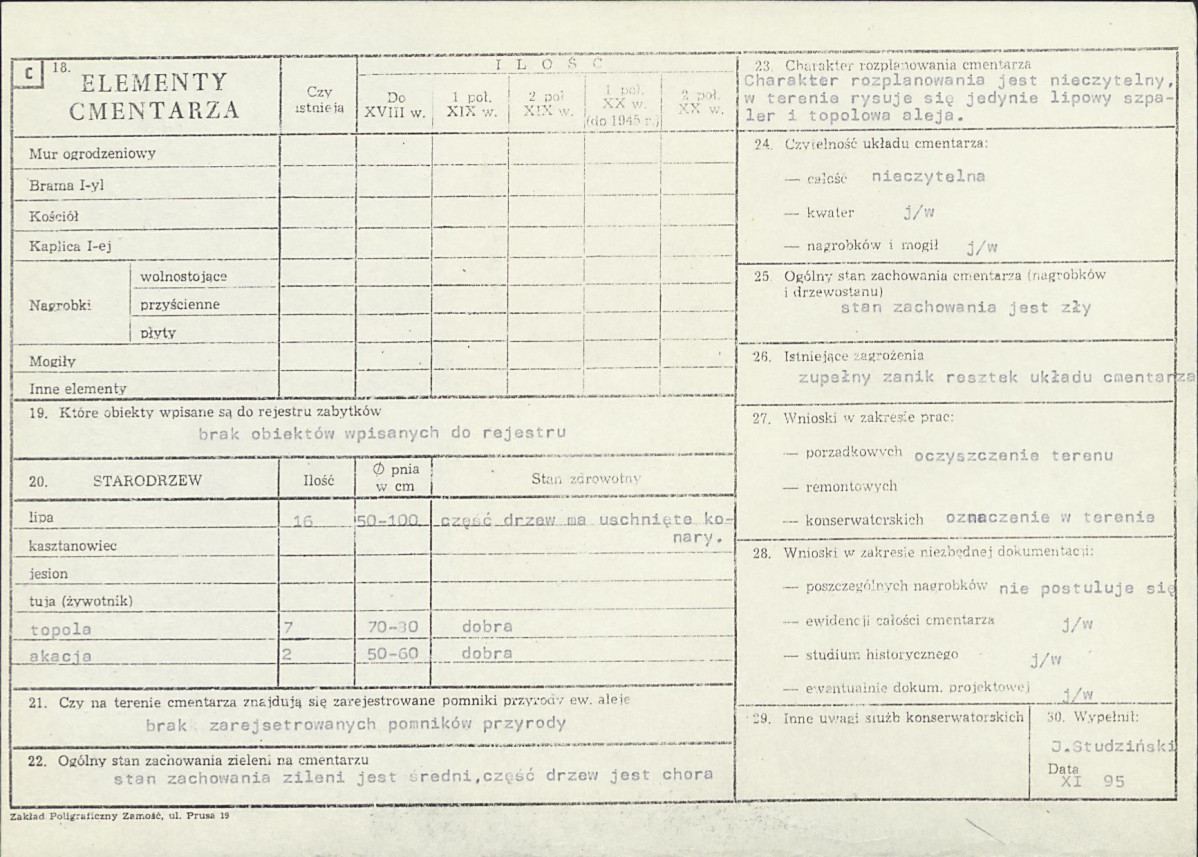 C
18. ELEMENTY CMENTARZA
Czy istnieją
I L O Ś Ć
Do XVIII w.
1 poł. XIX w.
2 poł XIX w.
1 poł. XX w. (do 1945 r.)
2 poł. XX w.
Mur ogrodzeniowy
Brama I-yl
Kościół
Kaplica I-ej
Nagrobki
wolnostojące
przyścienne
płyty
Mogiły
Inne elementy
19. Które obiekty wpisane są do rejestru zabytków
brak obiektów wpisanych do rejestru
20. STARODRZEW Ilość Ø pnia w cm Stan zdrowotny
lipa 16 50-100 część drzew ma uschnięte ko-
nary.
kasztanowiec
jesion
tuja (żywotnik)
topola 7 70-80 dobra
akacja 2 50-60 dobra
21. Czy na terenie cmentarza znajdują się zarejestrowane pomniki przyrody ew. aleje
brak zarejsetrowanych pomników przyrody
22. Ogólny stan zachowania zieleni na cmentarzu
stan zachowania zileni jest średni,część drzew jest chora
23. Charakter rozplanowania cmentarza
Charakter rozplanowania jest nieczytelny,
w terenie rysuje się jedynie lipowy szpa-
ler i topolowa aleja.
24. Czytelność układu cmentarza:
— całość nieczytelna
— kwater j/w
— nagrobków i mogił j/w
25. Ogólny stan zachowania cmentarza (nagrobków
i drzewostanu)
stan zachowania jest zły
26. Istniejące zagrożenia
zupełny zanik resztek układu cmentarza
27. Wnioski w zakresie prac:
— porządkowych oczyszczenie terenu
— remontowych
— konserwatorskich oznaczenie w terenie
28. Wnioski w zakresie niezbędnej dokumentacji:
— poszczególnych nagrobków nie postuluje się
— ewidencji całości cmentarza j/w
— studium historycznego j/w
— ewentualnie dokum. projektowej j/w
29. Inne uwagi służb konserwatorskich
30. Wypełnił:
J.Studziński
Data
XI 95
Zakład Poligraficzny Zamość, ul. Prusa 19